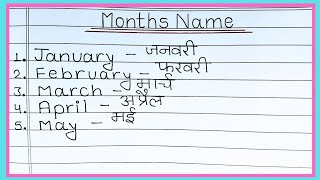 Months Name
1. January - जनवरी
2. February - फरवरी
3. March - मार्च
4. April - अप्रैल
5. May - मई